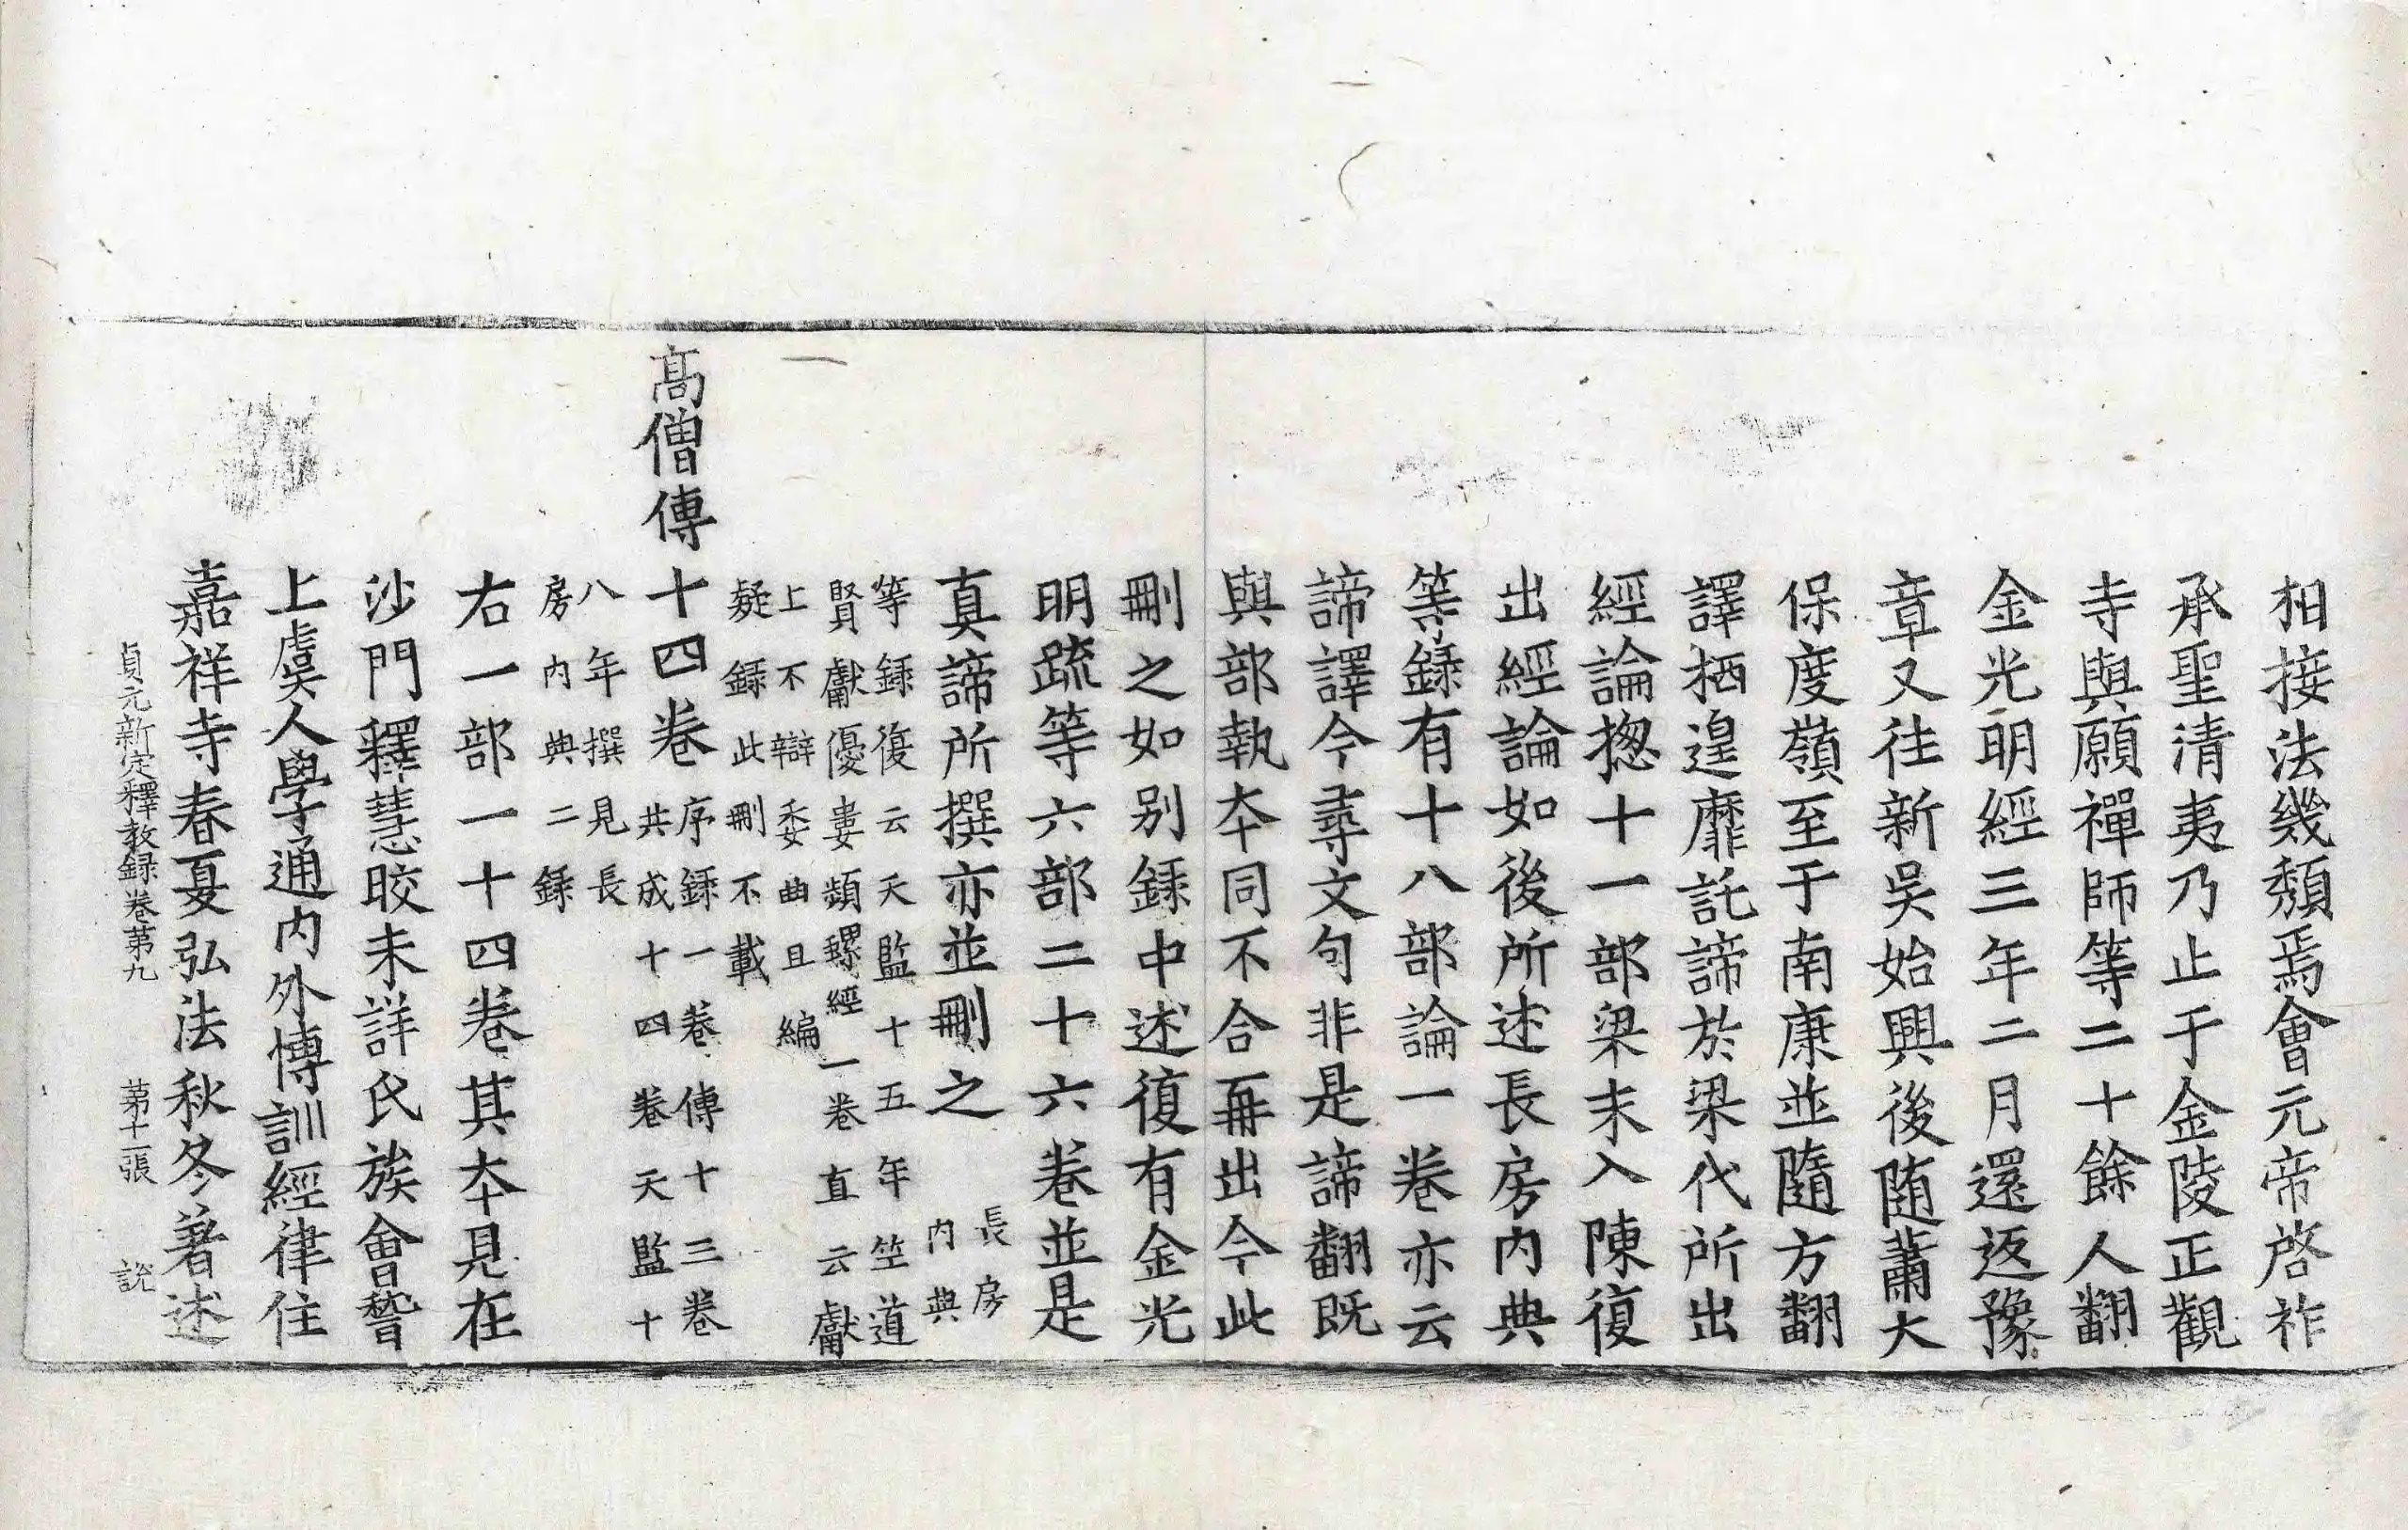 相接法幾頹焉會元帝啓祚
承聖清夷乃止于金陵正觀
寺與願禪師等二十餘人翻
金光明經三年二月還返豫
章又往新吳始興後随蕭大
保度嶺至于南康並隨方翻
譯栖遑靡託諦於梁代所出
經論揔十一部梁末入陳復
出經論如後所述長房內典
等録有十八部論一卷亦云
諦譯今尋文句非是諦翻既
與部執夲同不合再出今此
刪之如别録中述復有金光
明疏等六部二十六卷並是
真諦所撰亦並刪之長房
內典
等録復云天監十五年竺道
賢獻優婁頻螺經一卷直云獻
上不辯委曲且編
疑録此刪不載
高僧傳十四卷序録一卷傳十三卷
共成十四卷天監十
八年撰見長
房內典二録
右一部一十四卷其夲見在
沙門釋慧皎未詳氏族會稽
上虞人學通內外博訓經律住
嘉祥寺春夏弘法秋冬著述
貞元新定釋教録卷第九 第十二張 說